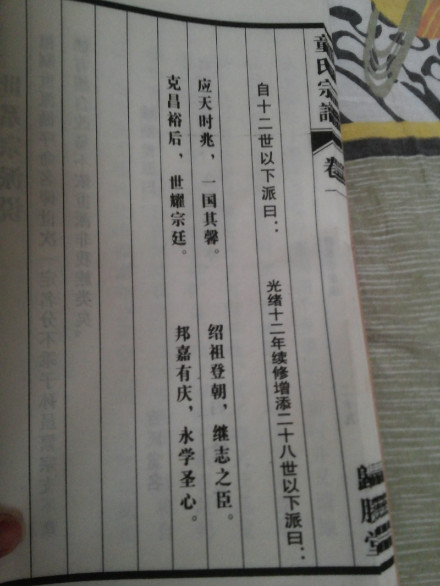 童氏宗谱
卷一
自十二世以下派曰：
应天时兆，一国其馨。
克昌裕后，世耀宗廷。
光绪十二年续修增添二十八世以下派曰：
绍祖登朝，继志之臣。
邦嘉有庆，永学圣心。
堂